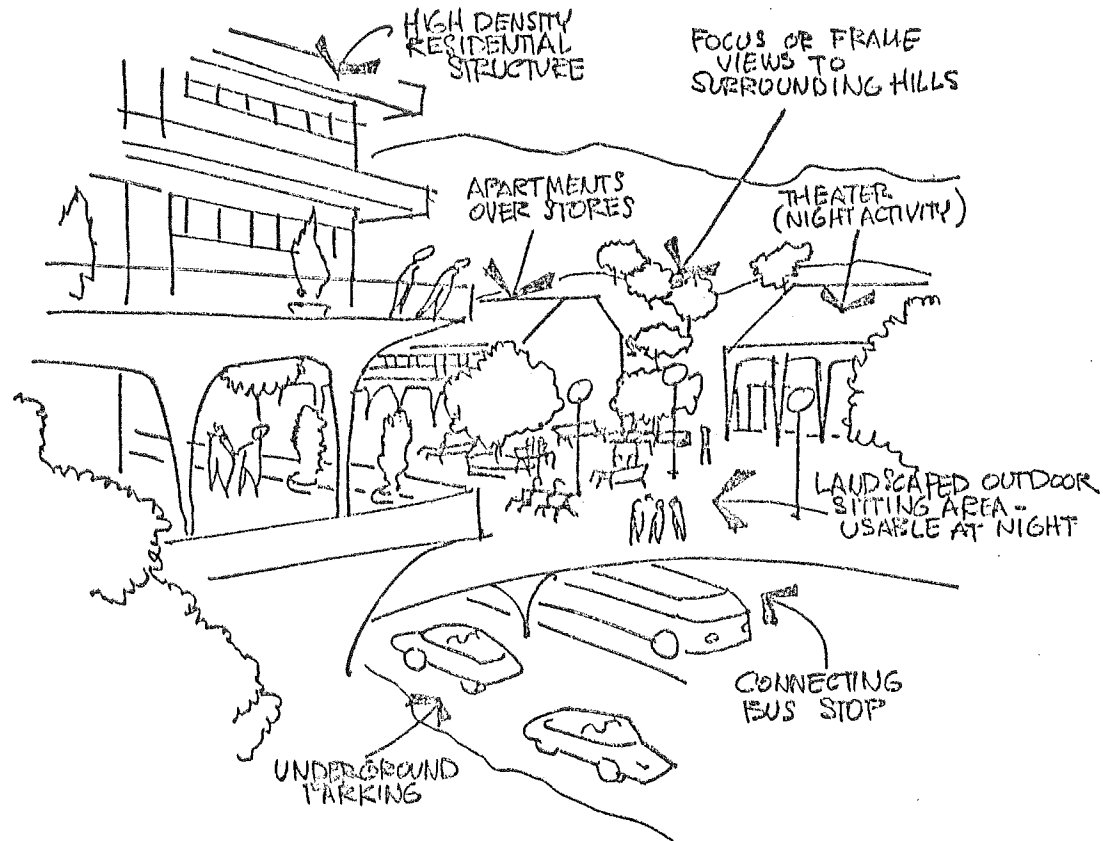 HIGH DENSITY
RESIDENTIAL
STRUCTURE
FOCUS OR FRAME
VIEWS TO
SURROUNDING HILLS
APARTMENTS
OVER STORES
THEATER
(NIGHT ACTIVITY)
LANDSCAPED OUTDOOR
SITTING AREA -
USABLE AT NIGHT
CONNECTING
BUS STOP
UNDERGROUND
PARKING